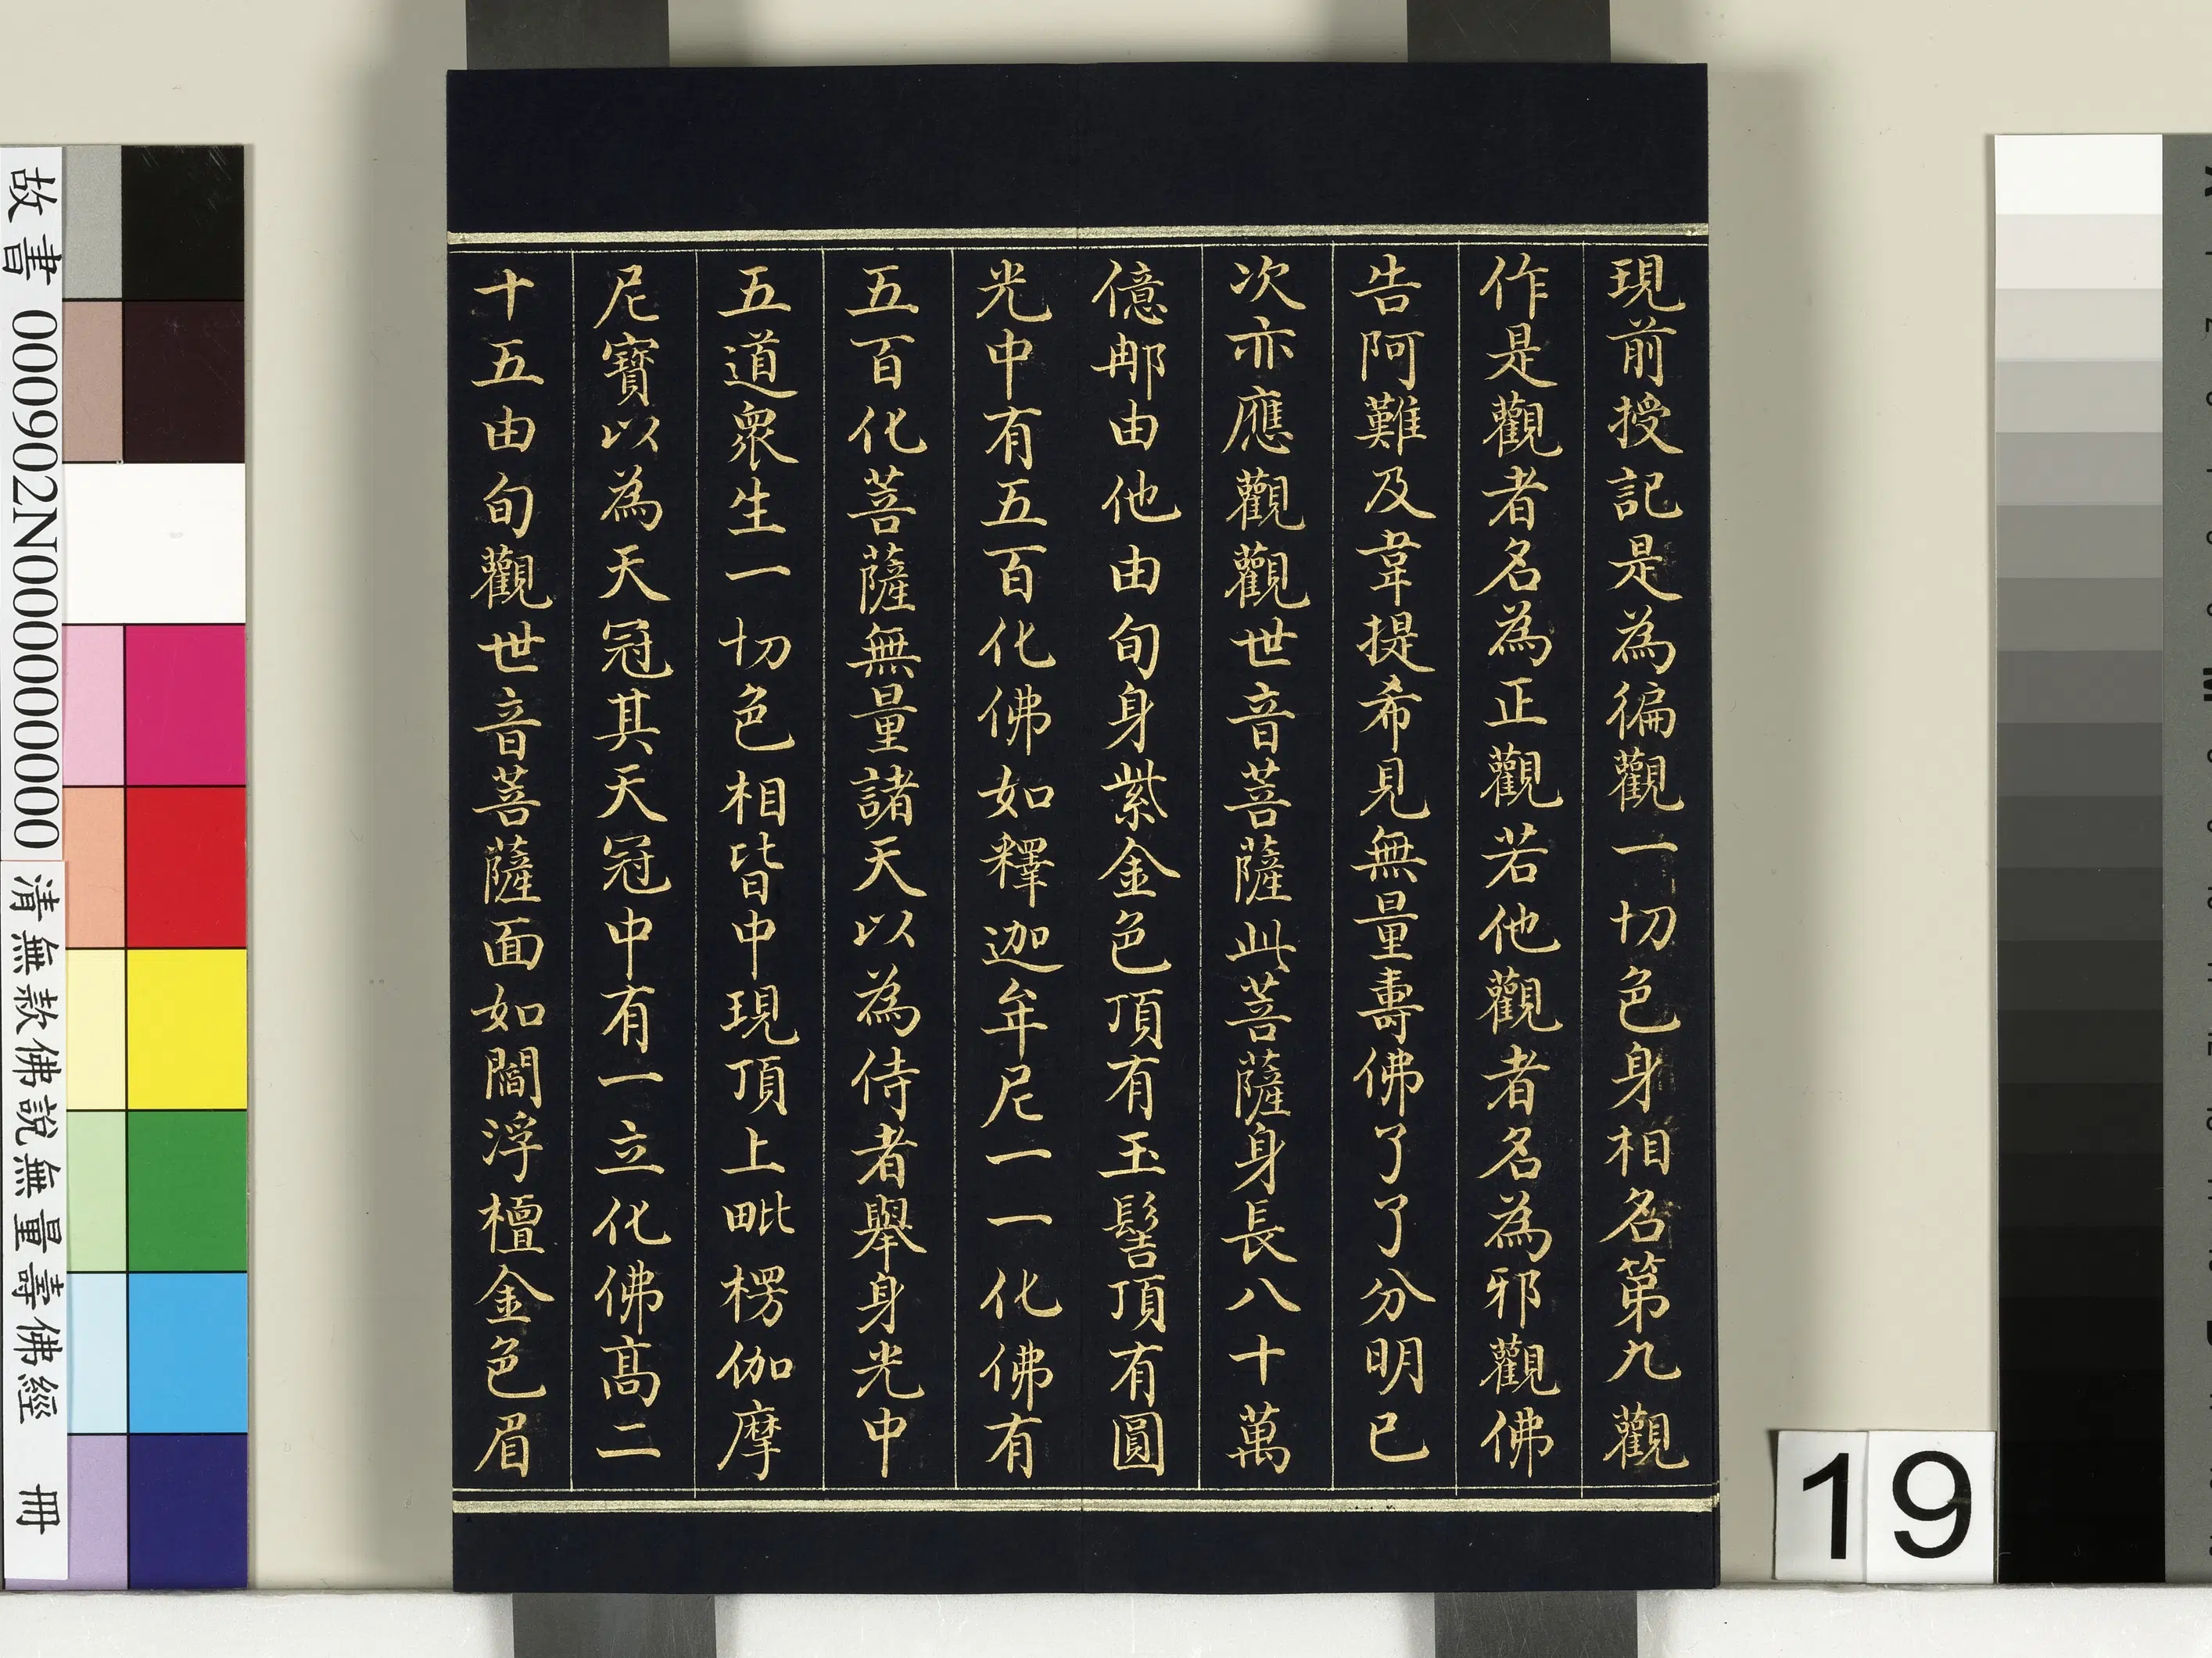 現前授記是為徧觀一切色身相名第九觀
作是觀者名為正觀若他觀者名為邪觀佛
告阿難及韋提希見無量壽佛了了分明已
次亦應觀觀世音菩薩此菩薩身長八十萬
億那由他由旬身紫金色頂有玉髻頂有圓
光中有五百化佛如釋迦牟尼一一化佛有
五百化菩薩無量諸天以為侍者舉身光中
五道眾生一切色相皆中現頂上毗楞伽摩
尼寶以為天冠其天冠中有一立化佛高二
十五由旬觀世音菩薩面如閻浮檀金色眉
故書 000902N000000000
清無款佛說無量壽佛經 冊
19